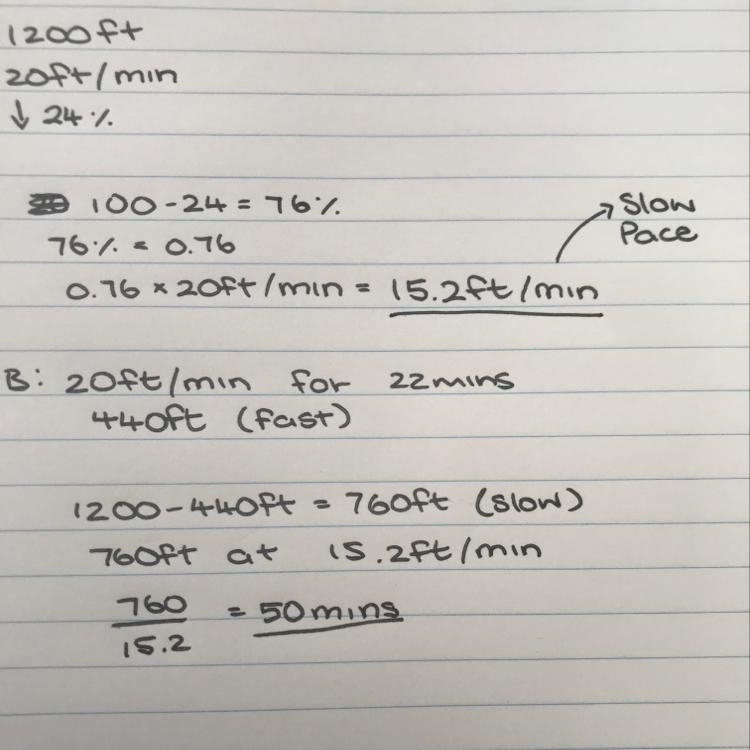 1200ft
20ft/min
↓ 24%
100-24 = 76%
76% = 0.76
0.76 × 20ft/min = 15.2ft/min
Slow
Pace
B: 20ft/min for 22mins
440ft (fast)
1200-440ft = 760ft (slow)
760ft at 15.2ft/min
760
= 50mins
15.2